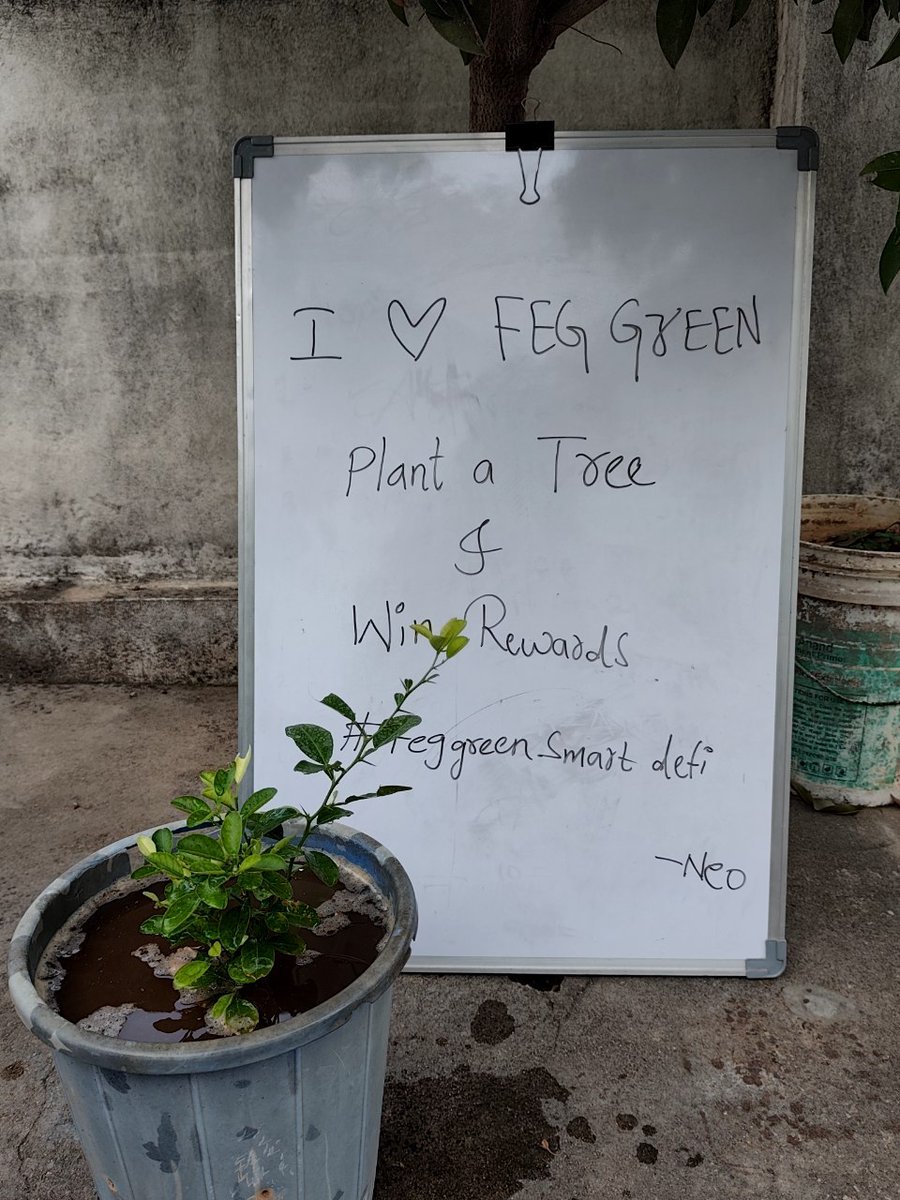 I ♡ FEG GrEEN
Plant a Tree
&
Win Rewards
#Feggreen Smart defi
-Neo